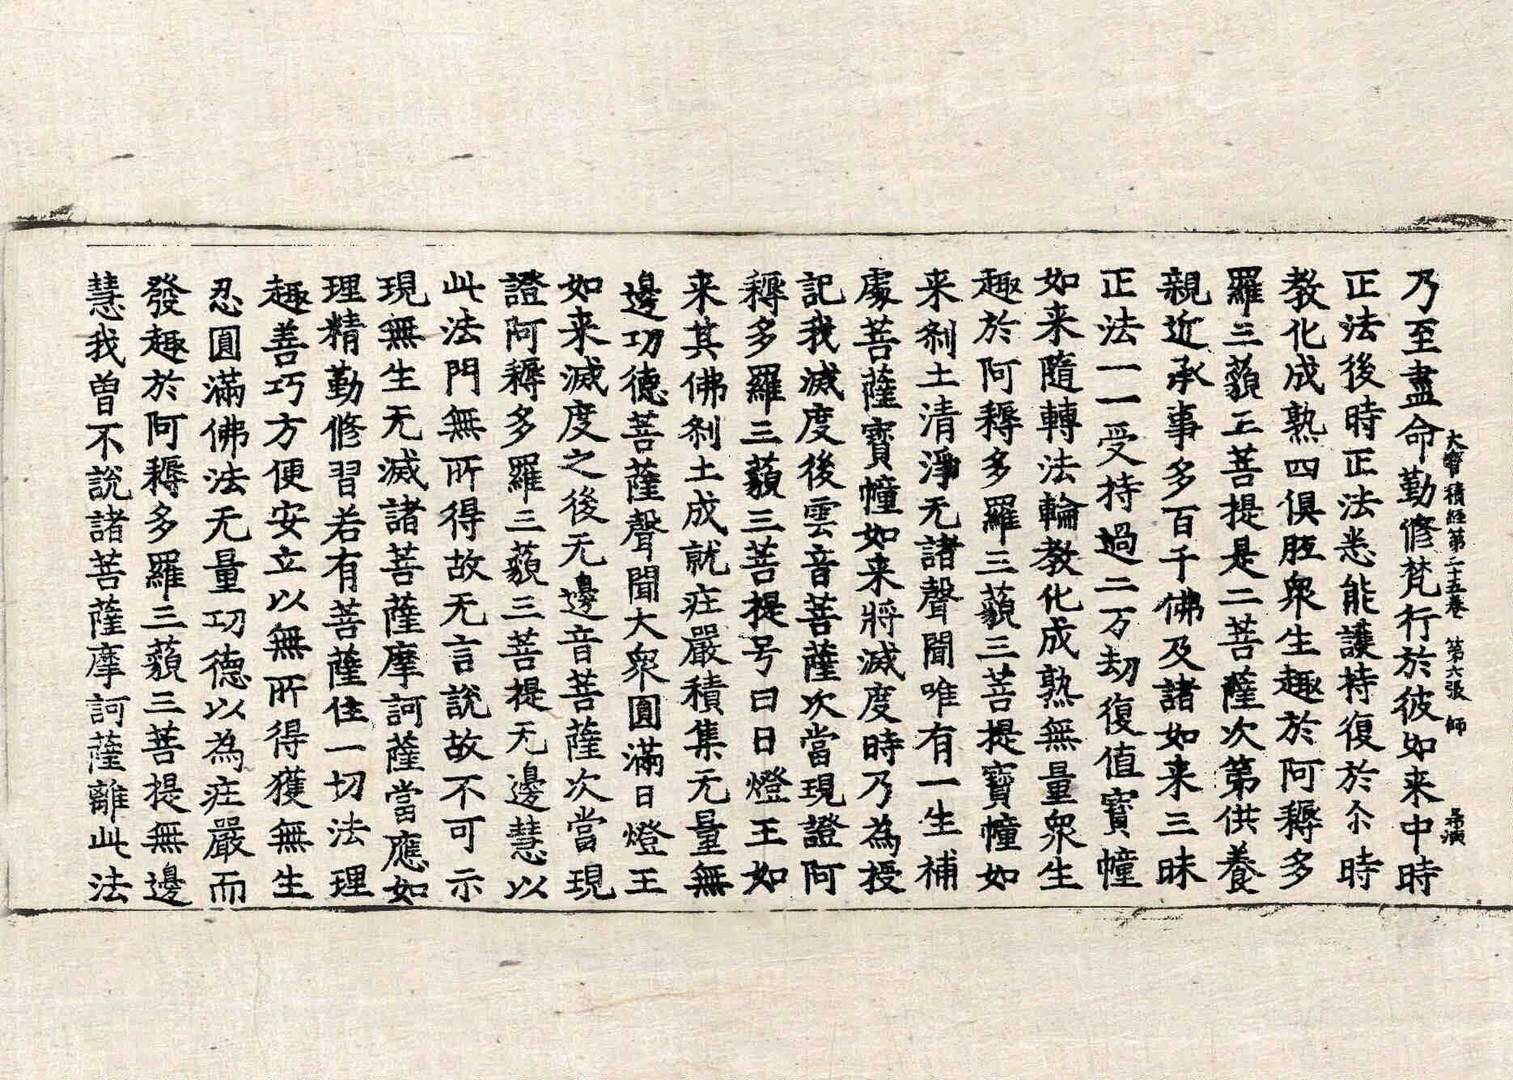 大寶積經第二十五卷 第六張 師
乃至盡命勤修梵行於彼如来中時
正法後時正法悉能護持復於尒時
教化成熟四俱胝衆生趣於阿耨多
羅三藐三菩提是二菩薩次第供養
親近承事多百千佛及諸如来三昧
正法一一受持過二万劫復值寶幢
如来隨轉法輪教化成熟無量衆生
趣於阿耨多羅三藐三菩提寶幢如
来刹土清淨无諸聲聞唯有一生補
處菩薩寶幢如来將滅度時乃為授
記我滅度後雲音菩薩次當現證阿
耨多羅三藐三菩提号曰日燈王如
来其佛刹土成就庄嚴積集无量無
邊功德菩薩聲聞大衆圓滿日燈王
如来滅度之後无邊音菩薩次當現
證阿耨多羅三藐三菩提无邊慧以
此法門無所得故无言說故不可示
現無生无滅諸菩薩摩訶薩當應如
理精勤修習若有菩薩住一切法理
趣善巧方便安立以無所得獲無生
忍圓滿佛法无量功德以為庄嚴而
發趣於阿耨多羅三藐三菩提無邊
慧我曾不說諸菩薩摩訶薩離此法